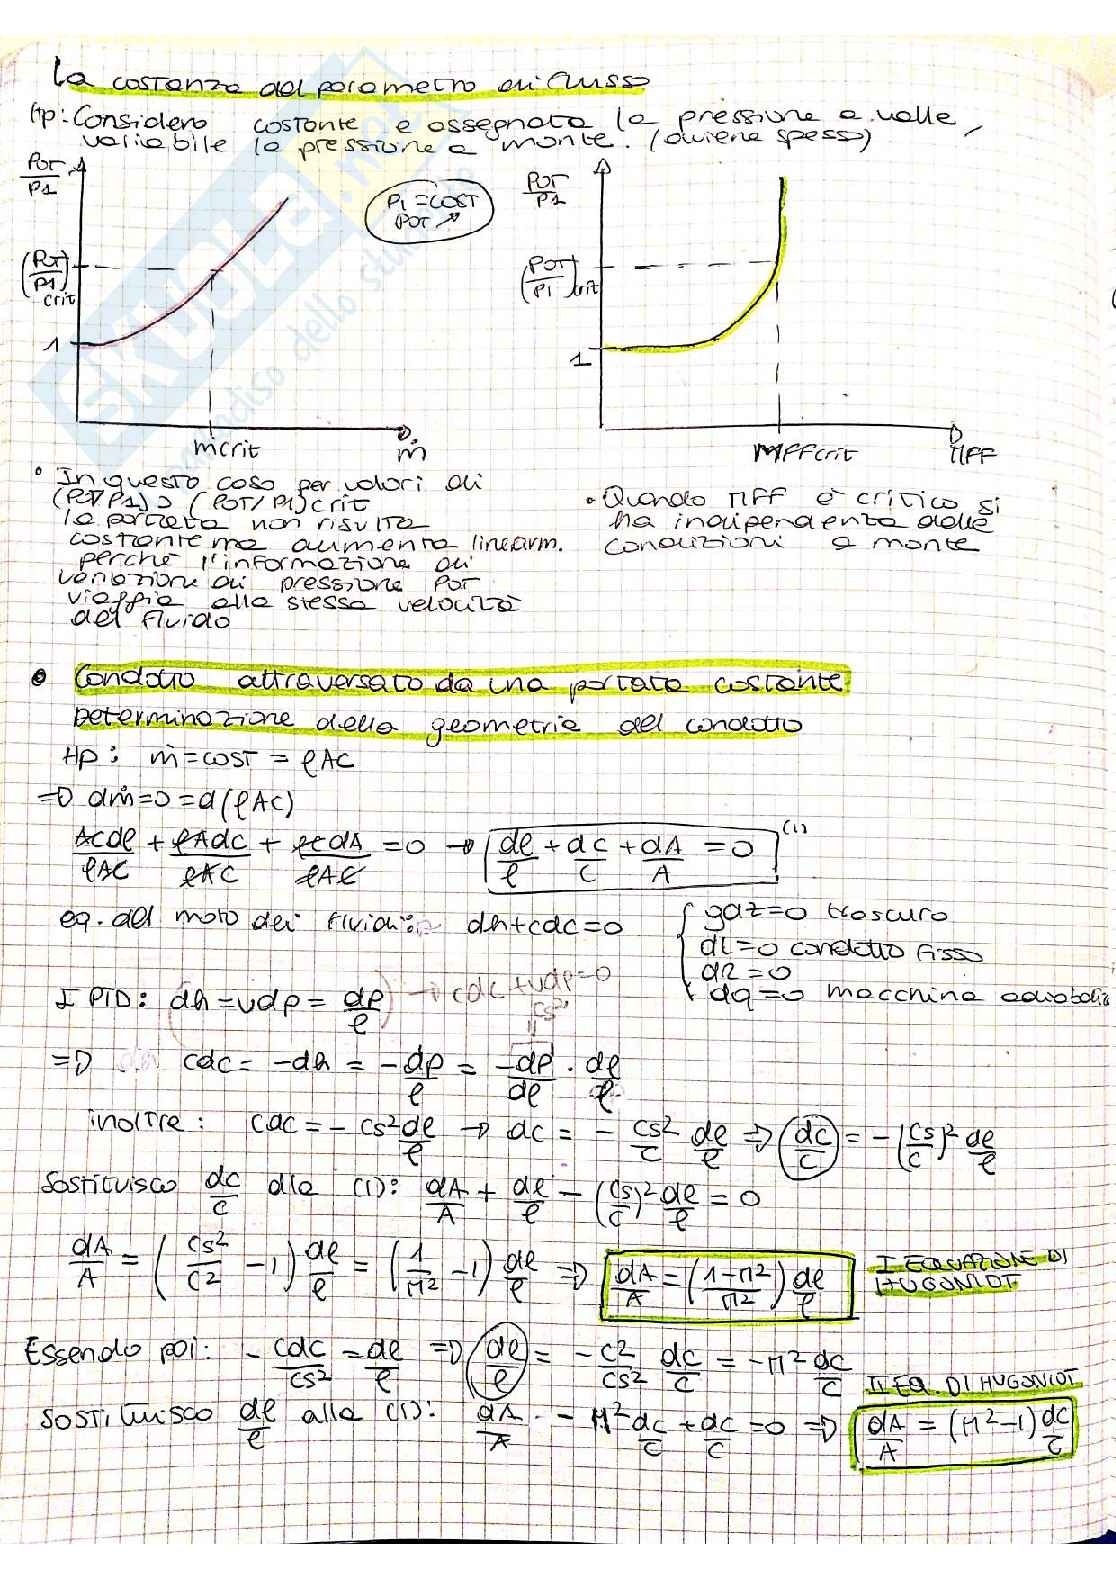 La costanza del parametro di flusso
Hp: Considero costante e assegnata la pressione a valle,
variabile la pressione a monte. (avviene spesso)
POT/P1
P1 = COST
POT ↗
POT/P1
(POT/P1)crit
(POT/P1)crit
1
1
ṁcrit
ṁ
MFFcrit
MFF
• In questo caso per valori di
(POT/P1) > (POT/P1)crit
la portata non risulta
costante ma aumenta linearm.
perché l'informazione di
variazione di pressione POT
viaggia alla stessa velocità
del fluido
• Quando MFF è critico si
ha indipendenza dalle
condizioni a monte
• Condotto attraversato da una portata costante
Determinazione della geometria del condotto
Hp: ṁ = cost = ρAC
=> dṁ = 0 = d(ρAC)
ACdρ/ρAC + ρAdc/ρAC + ρcdA/ρAC = 0 → dρ/ρ + dc/c + dA/A = 0 (1)
eq. del moto dei fluidi: dh + cdc = 0
{ gdz = 0 trascuro
dL = 0 condotto fisso
dR = 0
dq = 0 macchina adiabatic
I PTD: (dh = vdp = dp/ρ) → cdc + vdp = 0
"Cs²"
=> cdc = -dh = -dp/ρ = -dp/dρ · dρ/ρ
inoltre: cdc = -cs² dρ/ρ → dc = - cs²/c dρ/ρ => dc/c = -(cs/c)² dρ/ρ
Sostituisco dc/c alla (1): dA/A + dρ/ρ - (cs/c)² dρ/ρ = 0
dA/A = (cs²/c² - 1) dρ/ρ = (1/M² - 1) dρ/ρ => dA/A = (1-M²/M²) dρ/ρ
I EQUAZIONE DI
HUGONIOT
Essendo poi: - cdc/cs² = dρ/ρ => dρ/ρ = - c²/cs² dc/c = -M² dc/c
II EQ. DI HUGONIOT
Sostituisco dρ/ρ alla (1): dA/A - M² dc/c + dc/c = 0 => dA/A = (M²-1) dc/c